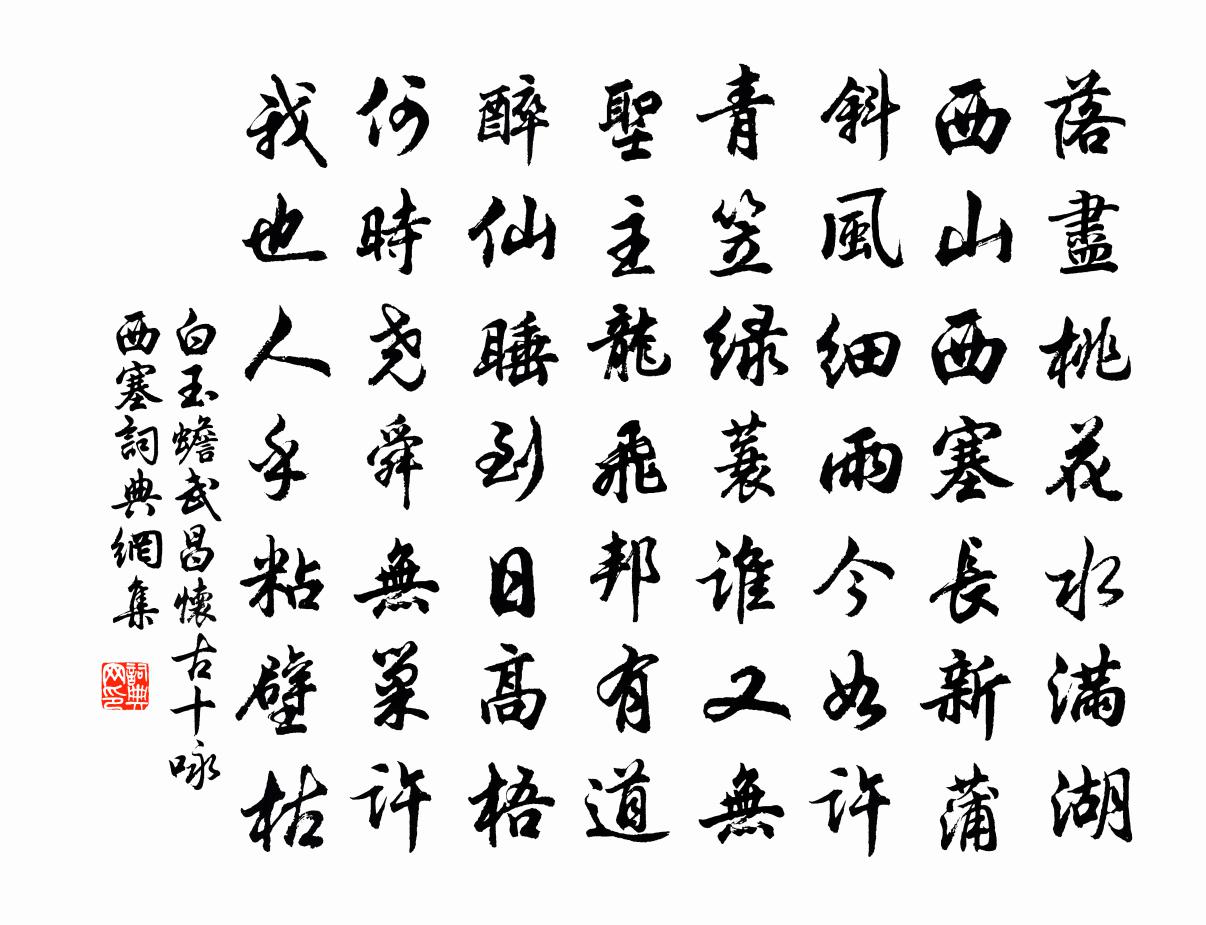 落盡桃花水滿湖
西山西塞長新蒲
斜風細雨今如許
青笠緑蓑誰又無
聖主龍飛邦有道
醉仙睡到日高梧
何時堯舜無巢許
我也人乎粘壁枯
白玉蟾武昌懷古十咏
西塞詞典網集
詞典网印